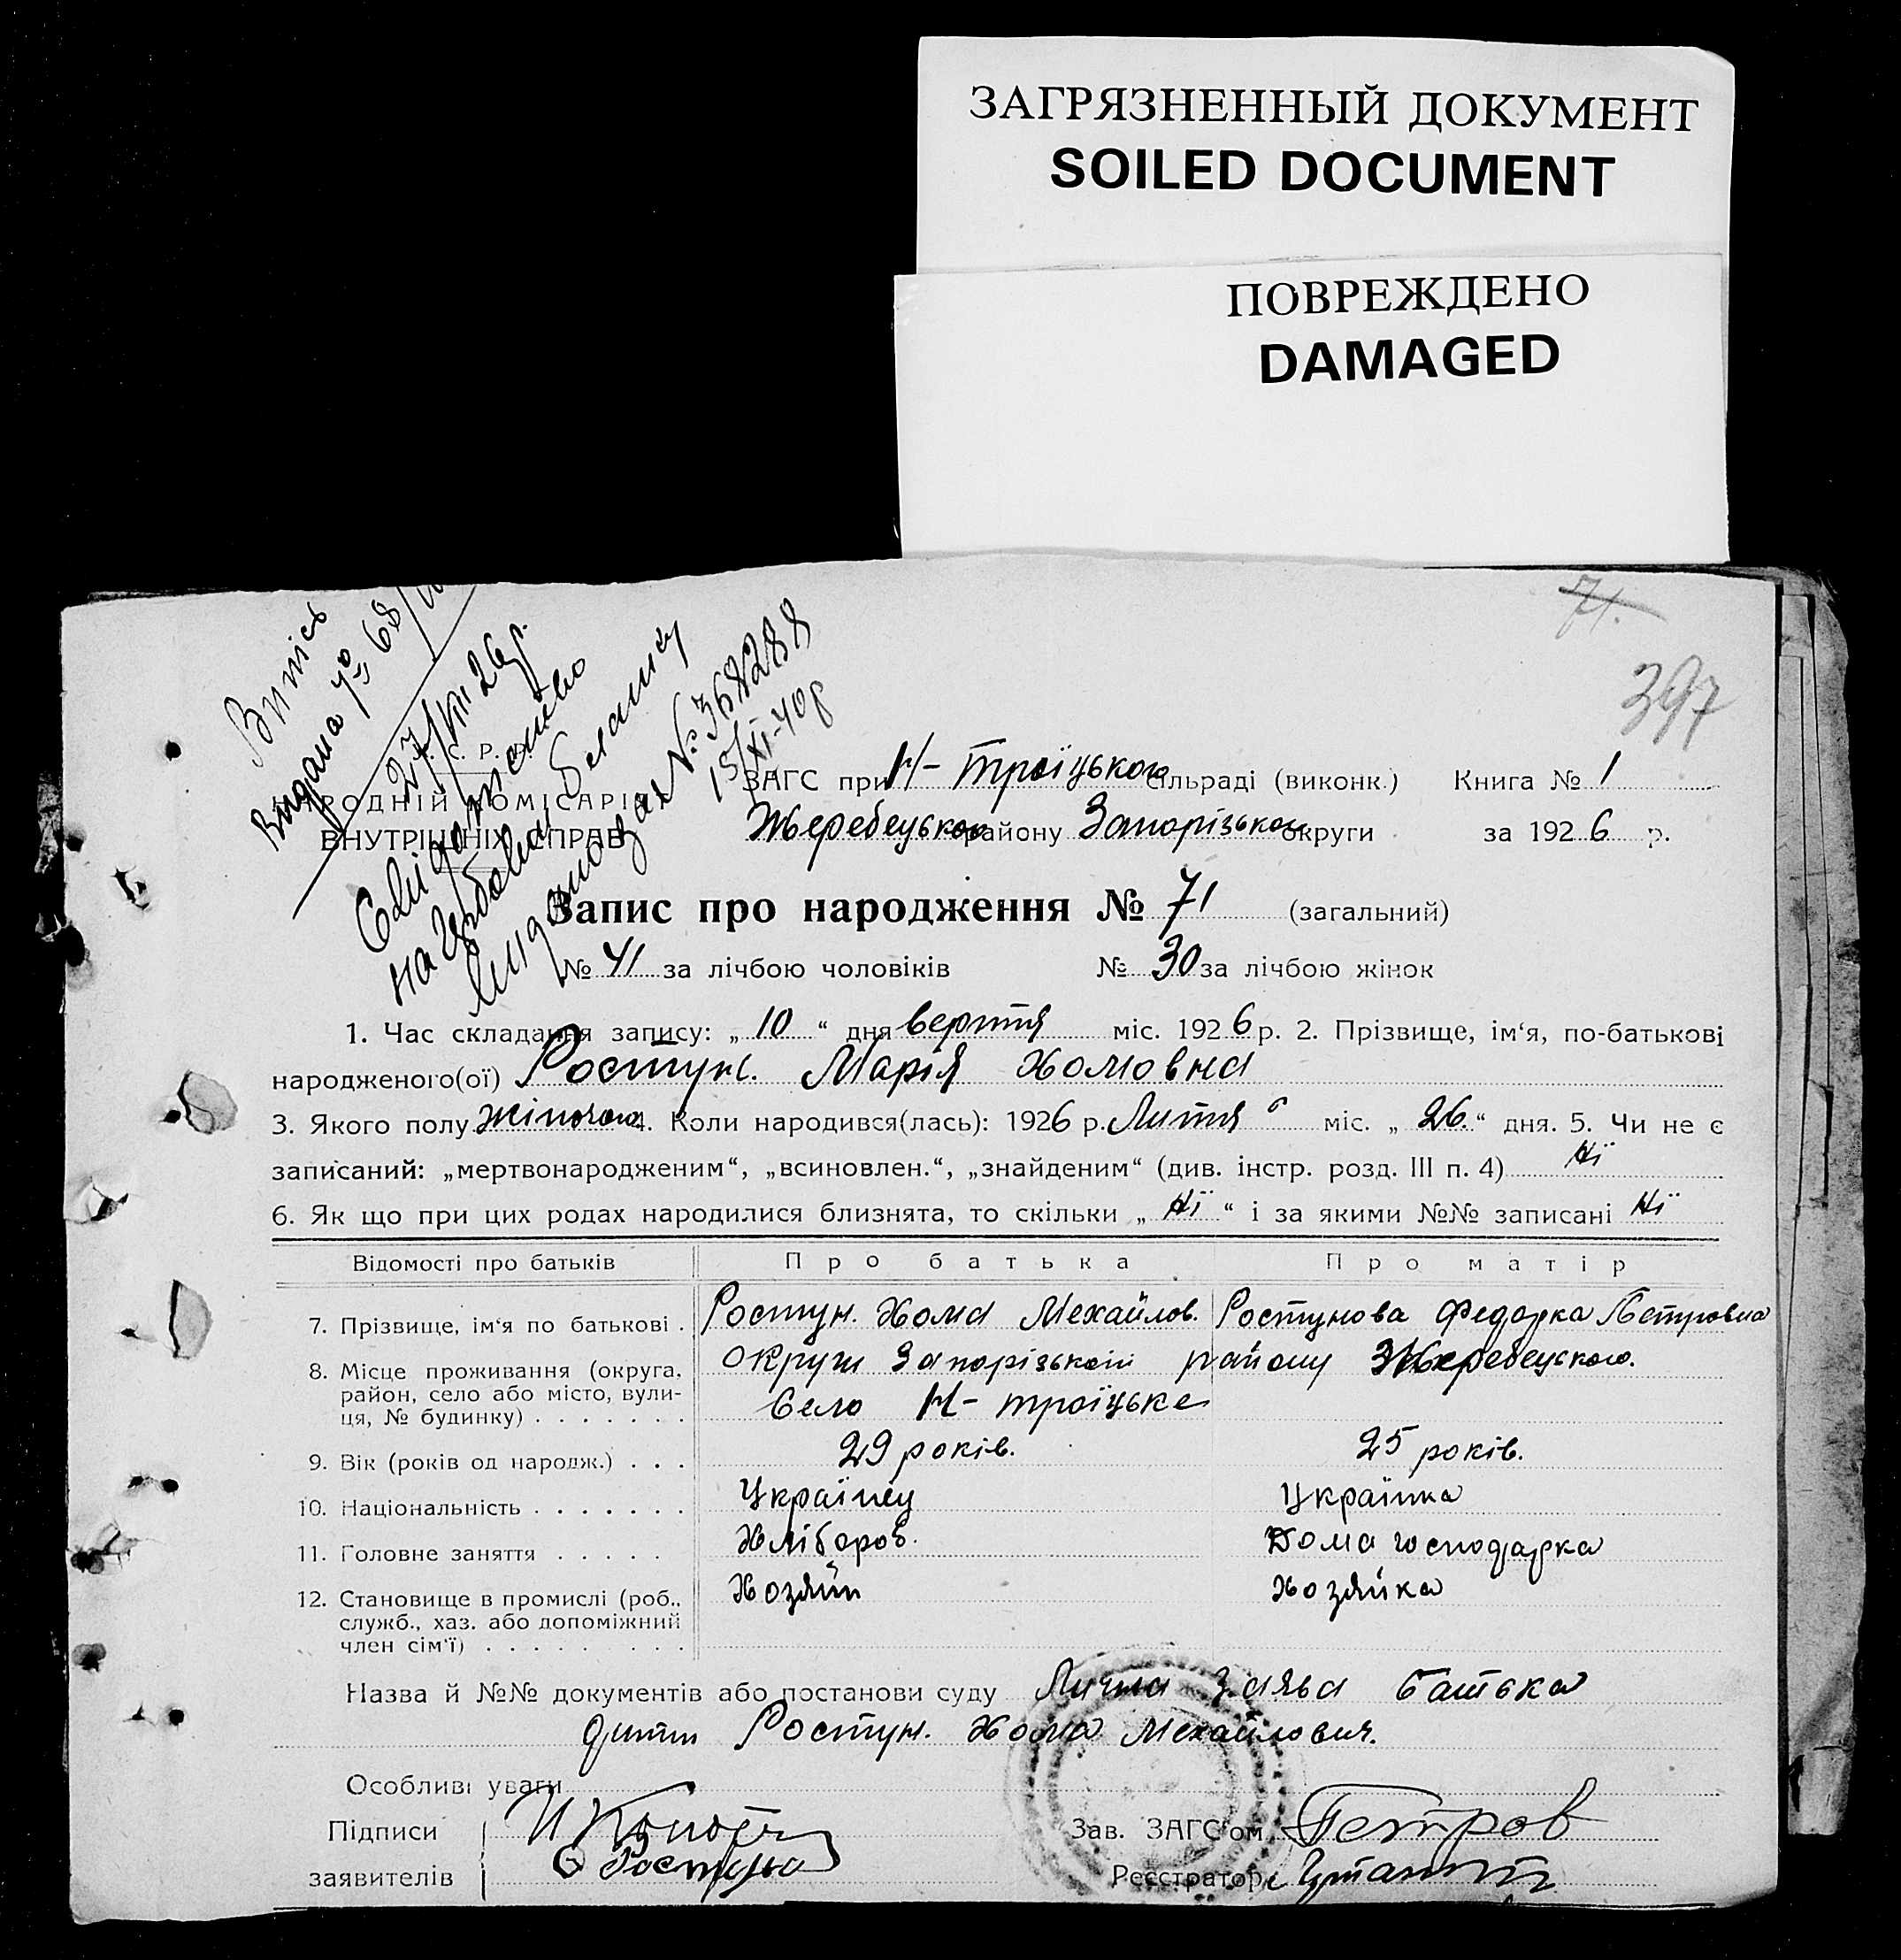 ЗАГРЯЗНЕННЫЙ ДОКУМЕНТ
SOILED DOCUMENT
ПОВРЕЖДЕНО
DAMAGED
71.
397
Випись
видана
27/VIII 26р.
№ 368288
15/XI-40р
У. С. Р. Р.
НАРОДНІЙ КОМІСАРІЯТ
ВНУТРІШНІХ СПРАВ
ЗАГС при Н-Троїцькою сільраді (виконк.) Книга № 1
Жеребецького району Запорізької округи за 1926 р.
Запис про народження № 71 (загальний)
№ 41 за лічбою чоловіків № 30 за лічбою жінок
1. Час складання запису: „ 10 “ дня мiс. 1926 р. 2. Прізвище, ім‘я, по-батькові
народженого(ої) Ростун. Марія Хомовна
3. Якого полу жіночого 4. Коли народився(лась): 1926 р. міс. „ 26. “ дня. 5. Чи не є
записаний: „мертвонародженим“, „всиновлен.“, „знайденим“ (див. інстр. розд. III п. 4) Ні
6. Як що при цих родах народилися близнята, то скільки „ Ні “ і за якими №№ записані Ні
Відомості про батьків Про батька Про матір
7. Прізвище, ім‘я по батькові . Ростун. Хома Мехайлов. Ростунова Федорка Петровна
8. Місце проживання (округа, район, село або місто, вулиця, № будинку) . . . . . . . Округи Запорізькой району Жеребецького.
Село Н-троїцьке
9. Вік (років од народж.) . . . 29 років. 25 років.
10. Національність . . . . . . . Українец Українка
11. Головне заняття . . . . . Хлібороб. Дома господарка
12. Становище в промислі (роб., служб., хаз. або допоміжний член сім‘ї) . . . . . . . . . Хозяйн Хозяйка
Назва й №№ документів або постанови суду Лична заява батька
дитин Ростун. Хома Мехайлович.
Особливі уваги
Підписи Зав. ЗАГС‘ом Петров
заявителів Ростун Реєстратор